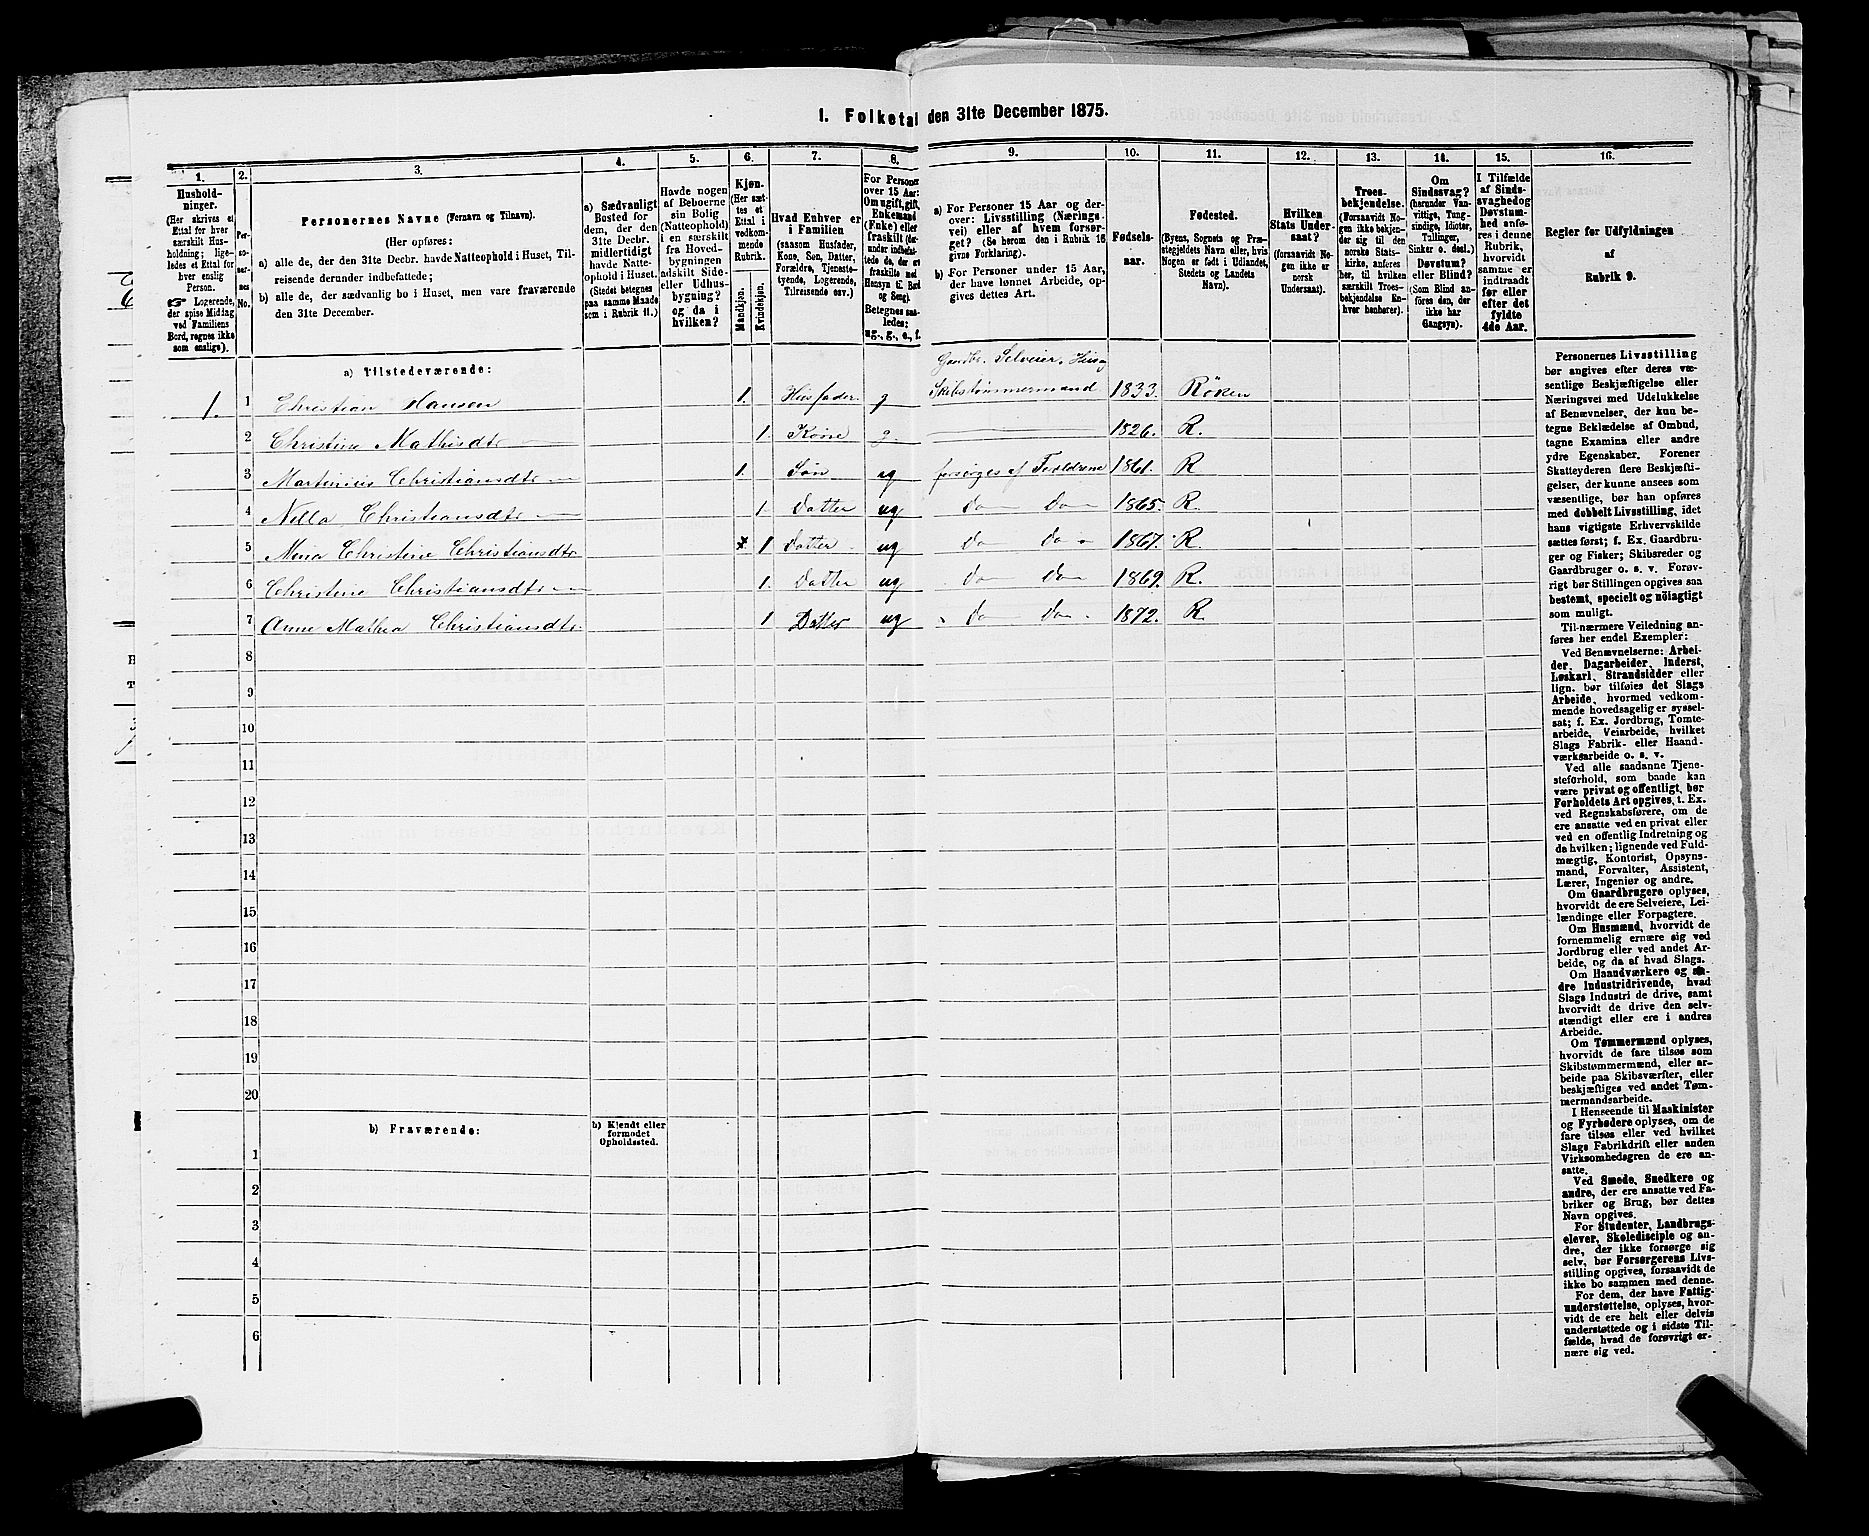 1. Folketal den 31te December 1875.
1.
2.
3.
4.
5.
6.
7.
8.
9.
10.
11.
12.
13.
14.
15.
16.
Hushold-
ninger.
(Her skrives et
Ettal for hver
særskilt Hus-
holdning; lige-
ledes et Ettal for
hver enslig
Person.
Logerende,
der spise Middag
ved Familiens
Bord, regnes ikke
som enslige).
Per-
so-
ner-
nes
No.
Personernes Navne (Fornavn og Tilnavn).
(Her opføres:
a) alle de, der den 31te Decbr. havde Natteophold i Huset, Til-
reisende derunder indbefattede;
b) alle de, der sædvanlig bo i Huset, men vare fraværende
den 31te December.
a) Sædvanligt
Bosted for
dem, der den
31te Decbr.
midlertidigt
havde Natte-
ophold i Huset.
(Stedet betegnes
paa samme Maade
som i Rubrik 11.)
Havde nogen
af Beboerne
sin Bolig
(Natteophold)
i en særskilt
fra Hoved-
bygningen
adskilt Side-
eller Udhus-
bygning?
og da i
hvilken?
Kjøn.
(Her sæt-
tes et
Ettal i
vedkom-
mende
Rubrik.
Mandkjøn.
Kvindekjøn.
Hvad Enhver er
i Familien
(saasom Husfader,
Kone, Søn, Datter,
Forældre, Tjeneste-
tyende, Logerende,
Tilreisende osv.)
For Personer
over 15 Aar:
Om ugift, gift,
Enkemand
(Enke) eller
fraskilt (der-
under indbefat-
tede de, der ere
fraskilte med
Hensyn til Bord
og Seng).
Betegnes saa-
ledes:
ug., g., e., f.
a) For Personer 15 Aar og der-
over: Livsstilling (Nærings-
vei) eller af hvem forsør-
get? (Se herom den i Rubrik 16
givne Forklaring).
b) For Personer under 15 Aar,
der have lønnet Arbeide, op-
gives dettes Art.
Fødsels-
aar.
Fødested.
(Byens, Sognets og Præ-
stegjeldets Navn eller, hvis
Nogen er født i Udlandet,
Stedets og Landets
Navn).
Hvilken
Stats Under-
saat?
(forsaavidt No-
gen ikke er
norsk
Undersaat).
Troes-
bekjendelse.
(Forsaavidt No-
gen ikke bekjen-
der sig til den
norske Stats-
kirke, anføres
her, til hvilken
særskilt Troes-
bekjendelse En-
hver henhører).
Om
Sindssvag?
(herunder Van-
vittige, Tung-
sindige, Idioter,
Tullinger,
Sinker o. desl.)
Døvstum?
eller Blind?
(Som Blind an-
føres den, der
ikke har
Gangsyn).
I Tilfælde
af Sinds-
svaghed og
Døvstum-
hed anfø-
res i denne
Rubrik,
hvorvidt
samme er
indtraadt
før eller
efter det
fyldte
4de Aar.
Regler for Udfyldningen
af
Rubrik 9.
a) Tilstedeværende:
Gaardbr. Selveier,
1. 1 Christian Hansen 1. Husfader g Skibstømmermand 1833. Röken
2 Christine Mathisdtr 1. Kone g. 1826. R.
3 Martinius Christiansdtr 1. Søn ug forsørges af Forældrene 1861. R
4 Nilla Christiansdtr 1 Datter ug do do 1865. R.
5 Mina Christine Christiansdtr 1 Datter ug do do 1867. R.
6 Christene Christiansdtr 1. Datter ug do do 1869. R.
7 Anne Mathea Christiansdtr. 1 Datter ug do do 1872. R.
8
9
10
11
12
13
14
15
16
17
18
19
20
b) Fraværende:
b) Kjendt eller
formodet
Opholdssted.
1
2
3
4
5
6
Personernes Livsstilling
bør angives efter deres væ-
sentlige Beskjæftigelse eller
Næringsvei med Udelukkelse
af Benævnelser, der kun be-
tegne Beklædelse af Ombud,
tagne Examina eller andre
ydre Egenskaber. Forener
Skatteyderen flere Beskjæfti-
gelser, der kunne ansees som
væsentlige, bør han opføres
med dobbelt Livsstilling, idet
hans vigtigste Erhvervskilde
sættes først; f. Ex. Gaardbru-
ger og Fisker; Skibsreder og
Gaardbruger o. s. v. Forøv-
rigt bør Stillingen opgives saa
bestemt, specielt og nöiagtigt
som muligt.
Til nærmere Veiledning an-
føres her endel Exempler:
Ved Benævnelserne: Arbei-
der, Dagarbeider, Inderst,
Løskarl, Strandsidder eller
lign. bør tilføies det Slags
Arbeide, hvormed vedkom-
mende hovedsagelig er syssel-
sat; f. Ex. Jordbrug, Tomte-
arbeide, Veiarbeide, hvilket
Slags Fabrik- eller Haand-
værksarbeide o. s. v.
Ved alle saadanne Tjene-
steforhold, som baade kan
være privat og offentligt, bør
Forholdets Art opgives, t. Ex.
ved Regnskabsførere, om de
ere ansatte ved en privat eller
ved en offentlig Indretning og
da hvilken; lignende ved Fuld-
mægtig, Kontorist, Opsyns-
mand, Forvalter, Assistent,
Lærer, Ingeniør og andre.
Om Gaardbrugere oplyses,
hvorvidt de ere Selveiere, Lei-
lændinge eller Forpagtere.
Om Husmænd, hvorvidt de
fornemmelig ernære sig ved
Jordbrug eller ved andet Ar-
beide, og da af hvad Slags.
Om Haandværkere og an-
dre Industridrivende, hvad
Slags Industri de drive, samt
hvorvidt de drive den selv-
stændigt eller ere i andres
Arbeide.
Om Tømmermænd oplyses,
hvorvidt de fare tilsøs som
Skibstømmermænd, eller ar-
beide paa Skibsværfter, eller
beskjæftiges ved andet Tøm-
mermandsarbeide.
I Henseende til Maskinister
og Fyrbødere oplyses, om de
fare tilsøs eller ved hvilket
Slags Fabrikdrift eller anden
Virksomhedsgren de ere an-
satte.
Ved Smede, Snedkere og
andre, der ere ansatte ved Fa-
briker og Brug, bør dettes
Navn opgives.
For Studenter, Landbrugs-
elever, Skoledisciple og an-
dre, der ikke forsørge sig
selv, bør Forsørgerens Livs-
stilling opgives, forsaavidt de
ikke bo sammen med denne.
For dem, der have Fattig-
understøttelse, oplyses, hvor-
vidt de ere helt eller delvis
understøttede og i sidste Til-
fælde, hvad de forøvrigt er-
nære sig ved.